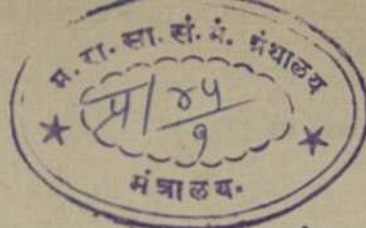 म. रा. सा. सं. मं. ग्रंथालय
प्र/४५
१
मंत्रालय.